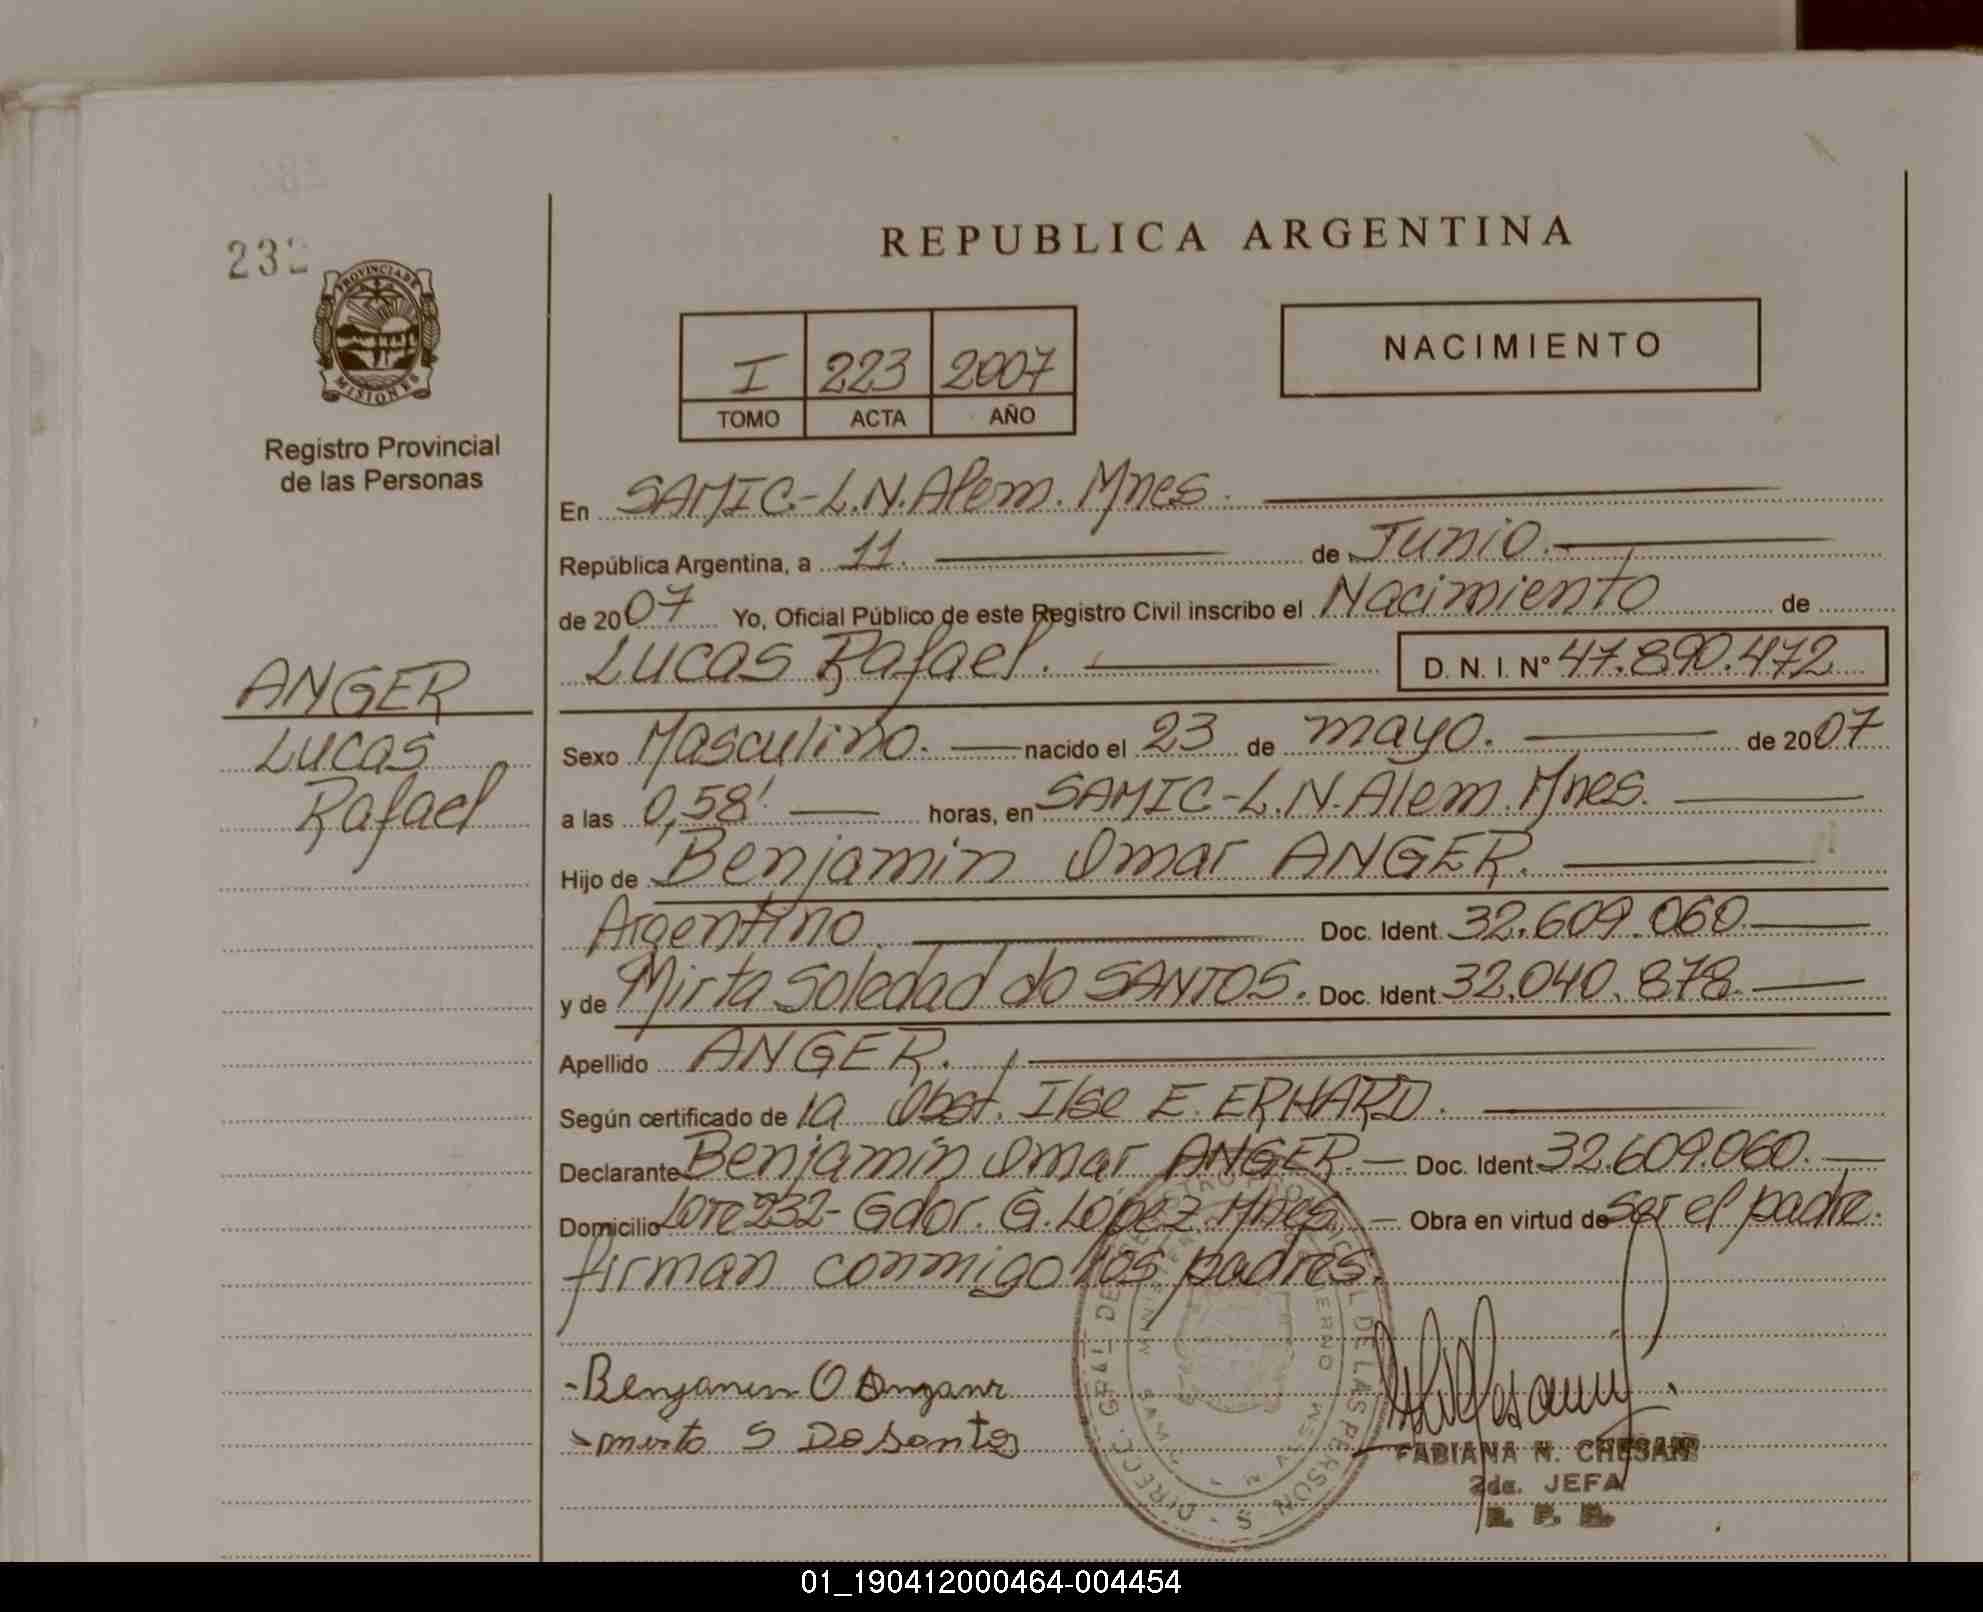 232
PROVINCIA DE
MISIONES
Registro Provincial
de las Personas
REPUBLICA ARGENTINA
I 223 2007
TOMO ACTA AÑO
NACIMIENTO
En SAMIC.-L.N.Alem. Mnes.
República Argentina, a 11. de Junio.
de 2007 Yo, Oficial Público de este Registro Civil inscribo el Nacimiento de
Lucas Rafael. D. N. I. N° 47.890.472
ANGER
Lucas
Rafael
Sexo Masculino. nacido el 23 de mayo. de 2007
a las 0,58' horas, en SAMIC-L.N.Alem. Mnes.
Hijo de Benjamin Omar ANGER.
Argentino. Doc. Ident. 32.609.060
y de Mirta Soledad do SANTOS. Doc. Ident. 32.040.878.
Apellido ANGER.
Según certificado de la Obst. Ilse E. ERHARD.
Declarante Benjamin Omar ANGER.- Doc. Ident. 32.609.060.
Domicilio Lote 232- Gdor. G. López Mnes. Obra en virtud de ser el padre.
firman conmigo los padres.
-Benjamin O
S Do Santos
FABIANA N. CHESANI
2da. JEFA
R. P. P.
01_190412000464-004454